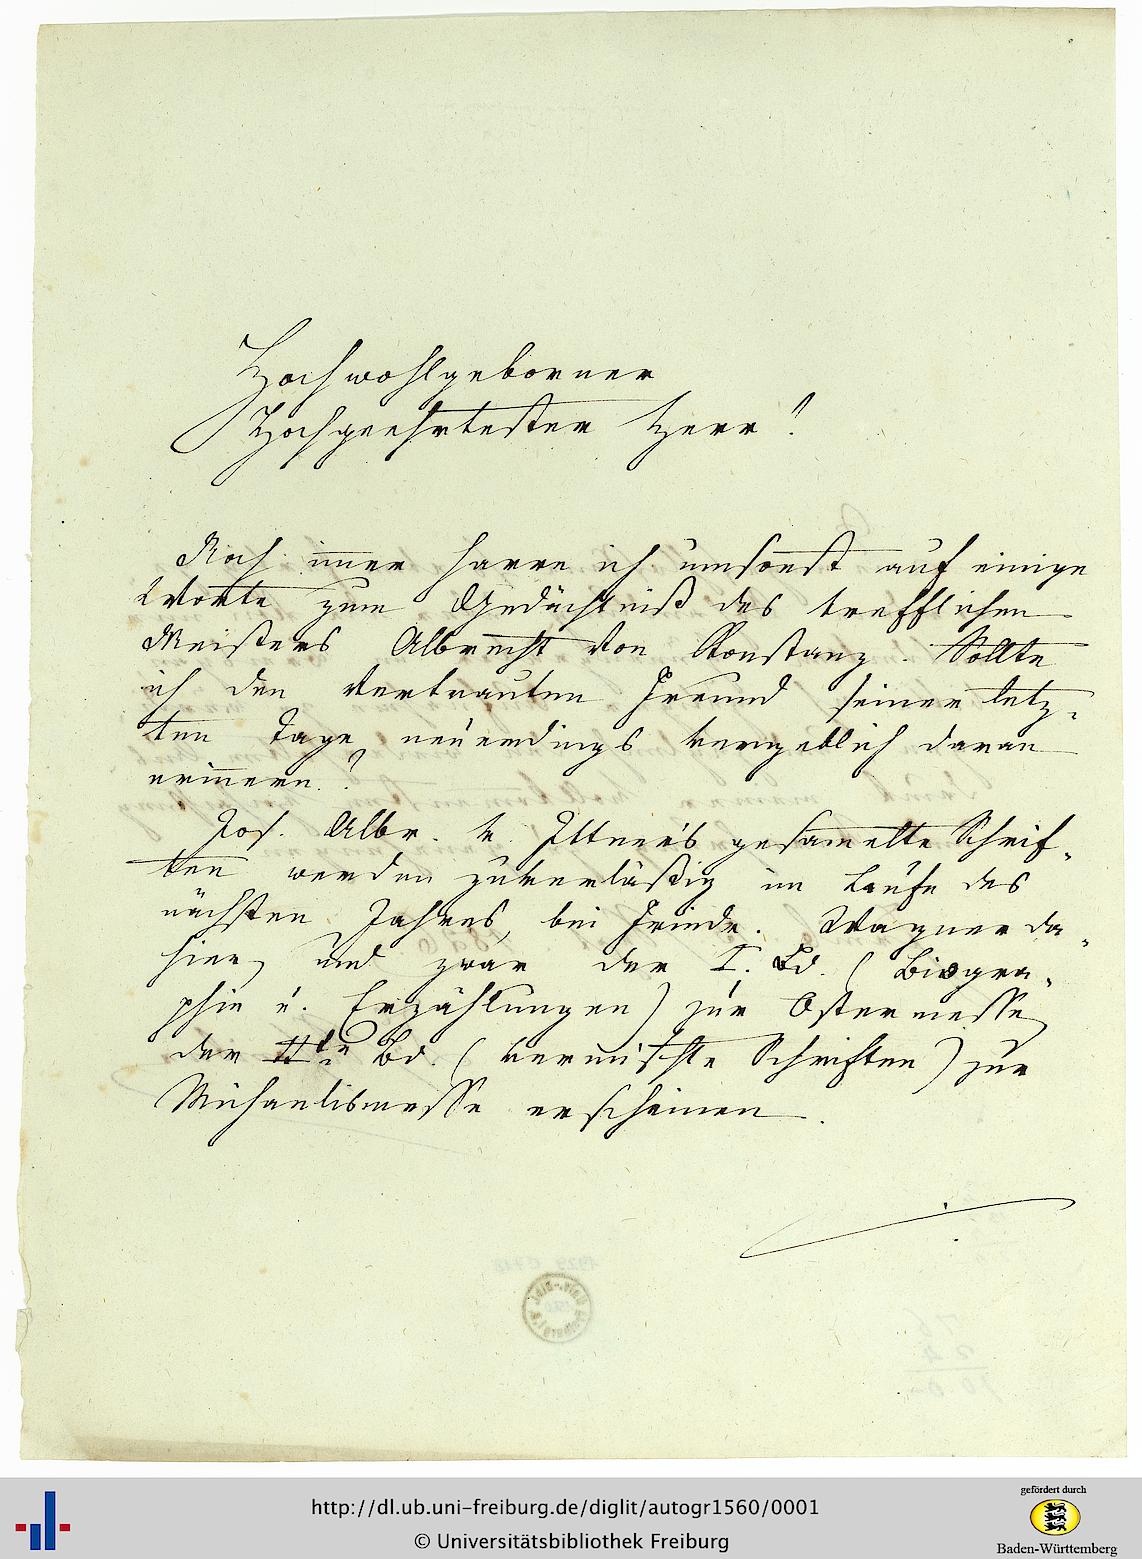 Hochwohlgeborner
Hochgeehrtester Herr!
Noch im̅er harre ich umsonst auf einige
Worte zum Gedächtniß des trefflichen
Meisters Albrecht von Konstanz. Sollte
ich den vertrauten Freund seiner letz-
ten Tage neuerdings vergeblich daran
erin̅ern?
Jos. Albr. v. Ittner's gesam̅elte Schrif-
ten werden zuverläßig im Laufe des
nächsten Jahres, bei Friedr. Wagner da-
hier, und zwar der I. Bd. (Biogra-
phie u. Erzählungen) zur Ostermesse,
der IIte Bd. (vermischte Schriften) zur
Michaelismesse erscheinen.
http://dl.ub.uni-freiburg.de/diglit/autogr1560/0001
© Universitätsbibliothek Freiburg
gefördert durch
Baden-Württemberg